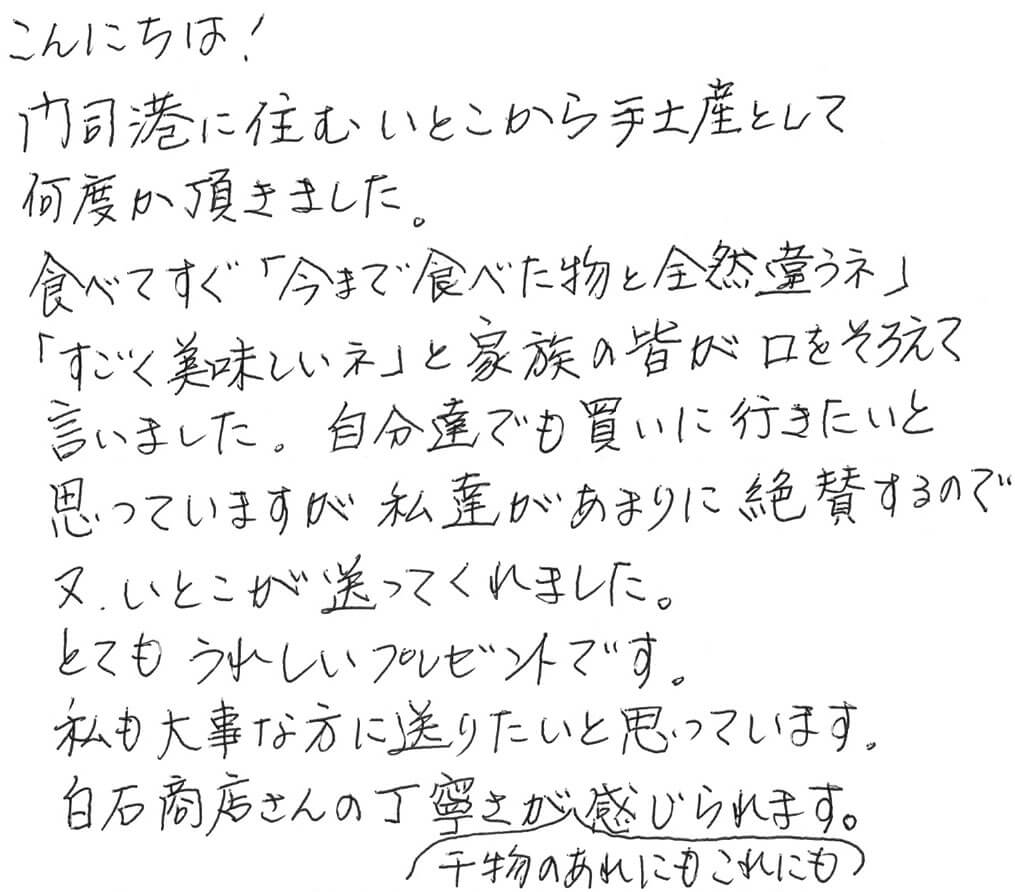 こんにちは!
門司港に住むいとこから手土産として
何度か頂きました。
食べてすぐ「今まで食べた物と全然違うネ」
「すごく美味しいネ」と家族の皆が口をそろえて
言いました。自分達でも買いに行きたいと
思っていますが私達があまりに絶賛するので
又、いとこが送ってくれました。
とてもうれしいプレゼントです。
私も大事な方に送りたいと思っています。
白石商店さんの丁寧さが感じられます。
(干物のあれにもこれにも)